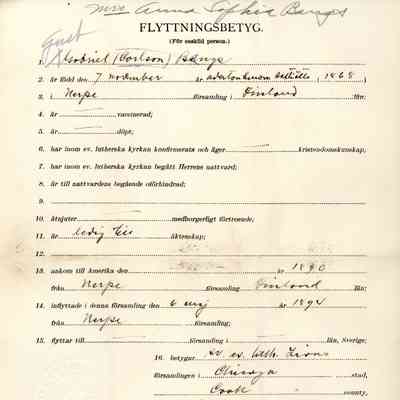 Mrs Anna Sophia Bangs
FLYTTNINGSBETYG.
(För enskild person.)
Gust
1. Gabriel (Carlson) Bangs
2. är född den 7 november år adertonhundra (1868)
3. i Nerpe församling i Finland län;
4. är vaccinerad;
5. är döpt;
6. har inom ev. lutherska kyrkan konfirmerats och äger kristendomskunskap;
7. har inom ev. lutherska kyrkan begått Herrens nattvard;
8. är till nattvardens begående oförhindrad;
9.
10. åtnjuter medborgerligt förtroende;
11. är ledig till äktenskap;
12.
13. ankom till Amerika den år 1890
från Nerpe församling Finland län;
14. inflyttade i denna församling den 6 maj år 1894
från Nerpe församling;
15. flyttar till församling i län, Sverige;
16. betygar av ev. luth. Zions
församlingen i Chicago stad,
Cook county,